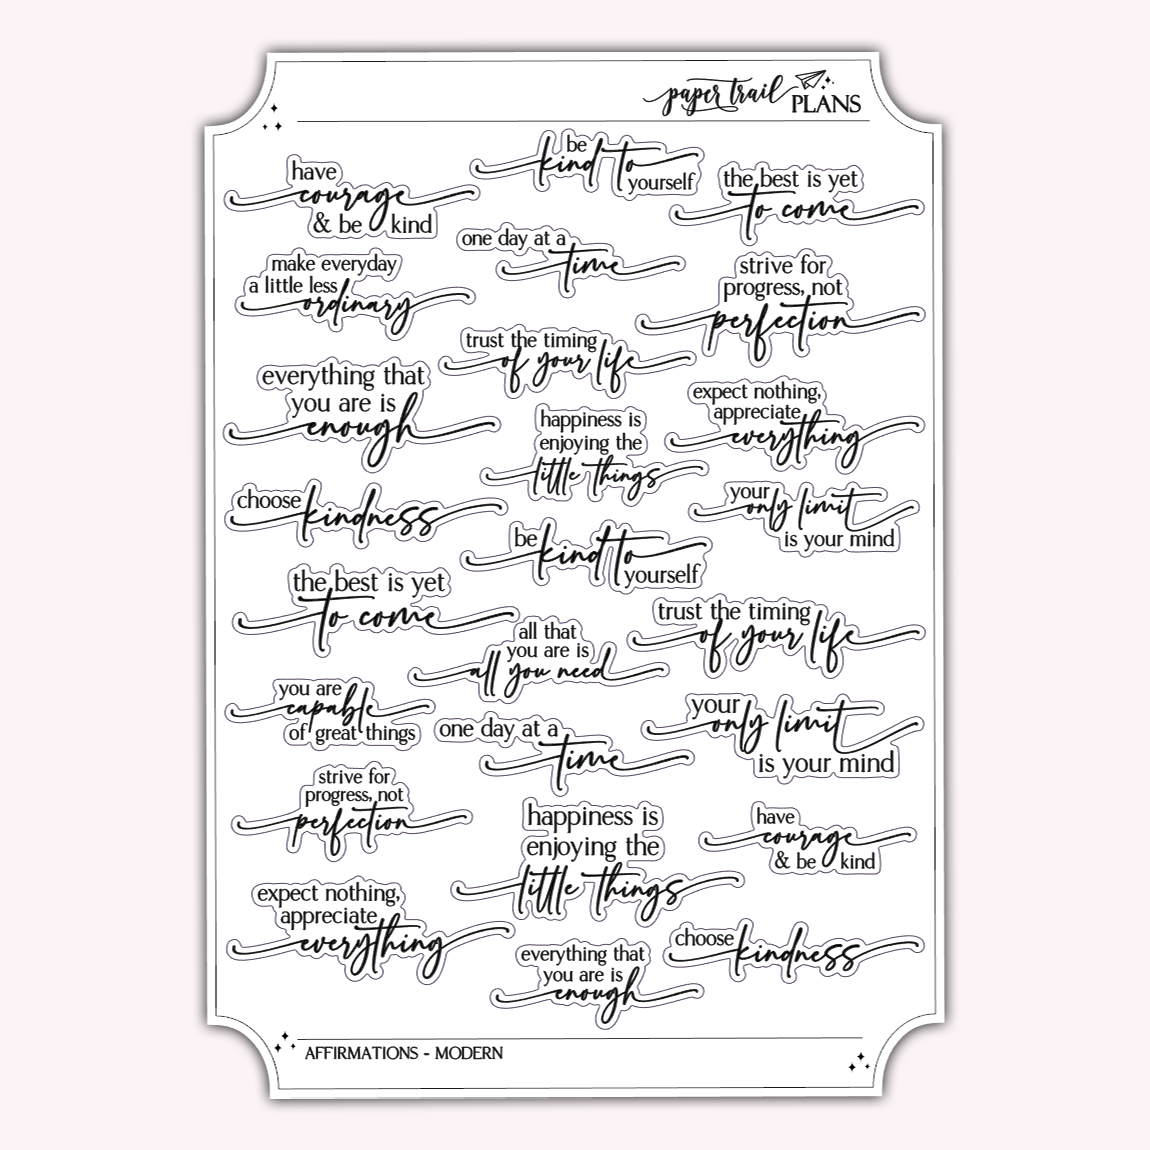 paper trail
PLANS
have
courage
& be kind
be
kind to
yourself
the best is yet
to come
make everyday
a little less
ordinary
one day at a
time
strive for
progress, not
perfection
trust the timing
of your life
everything that
you are is
enough
happiness is
enjoying the
little things
expect nothing,
appreciate
everything
choose kindness
your
only limit
is your mind
be
kind to
yourself
the best is yet
to come
all that
you are is
all you need
trust the timing
of your life
you are
capable
of great things
one day at a
time
your
only limit
is your mind
strive for
progress, not
perfection
happiness is
enjoying the
little things
have
courage
& be kind
expect nothing,
appreciate
everything
everything that
you are is
enough
choose kindness
AFFIRMATIONS - MODERN